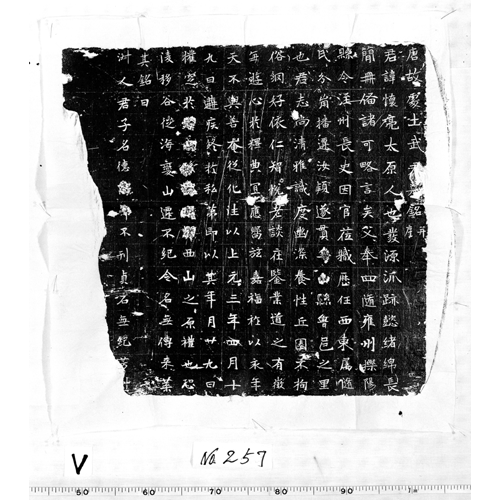 唐故處士武
君諱懷亮太原人也發源派跡懿緒綿長
簡冊備諸可略言矣父奉四隨雍州櫟陽
縣令洼州長史因官蒞職歷任西東屬隨
民分萠播遷汝潁遂貫魯山縣魯邑之里
也君志尚清雅識度幽深養性丘園不拘
俗網好依仁智悅老談莊鑒業道之有徵
每遊心於釋典宜應留茲嘉福於以永年
天不與善奄從化往以上元三年四月十
九日遘疾終於私第即以其年月廿九日
權窆於 西山之原禮也恐
陵移谷徙海變山遷不紀令名無傳来葉
其銘曰
洲人君子名德 不刊貞石無紀
V
No. 257
50 60 70 80 90